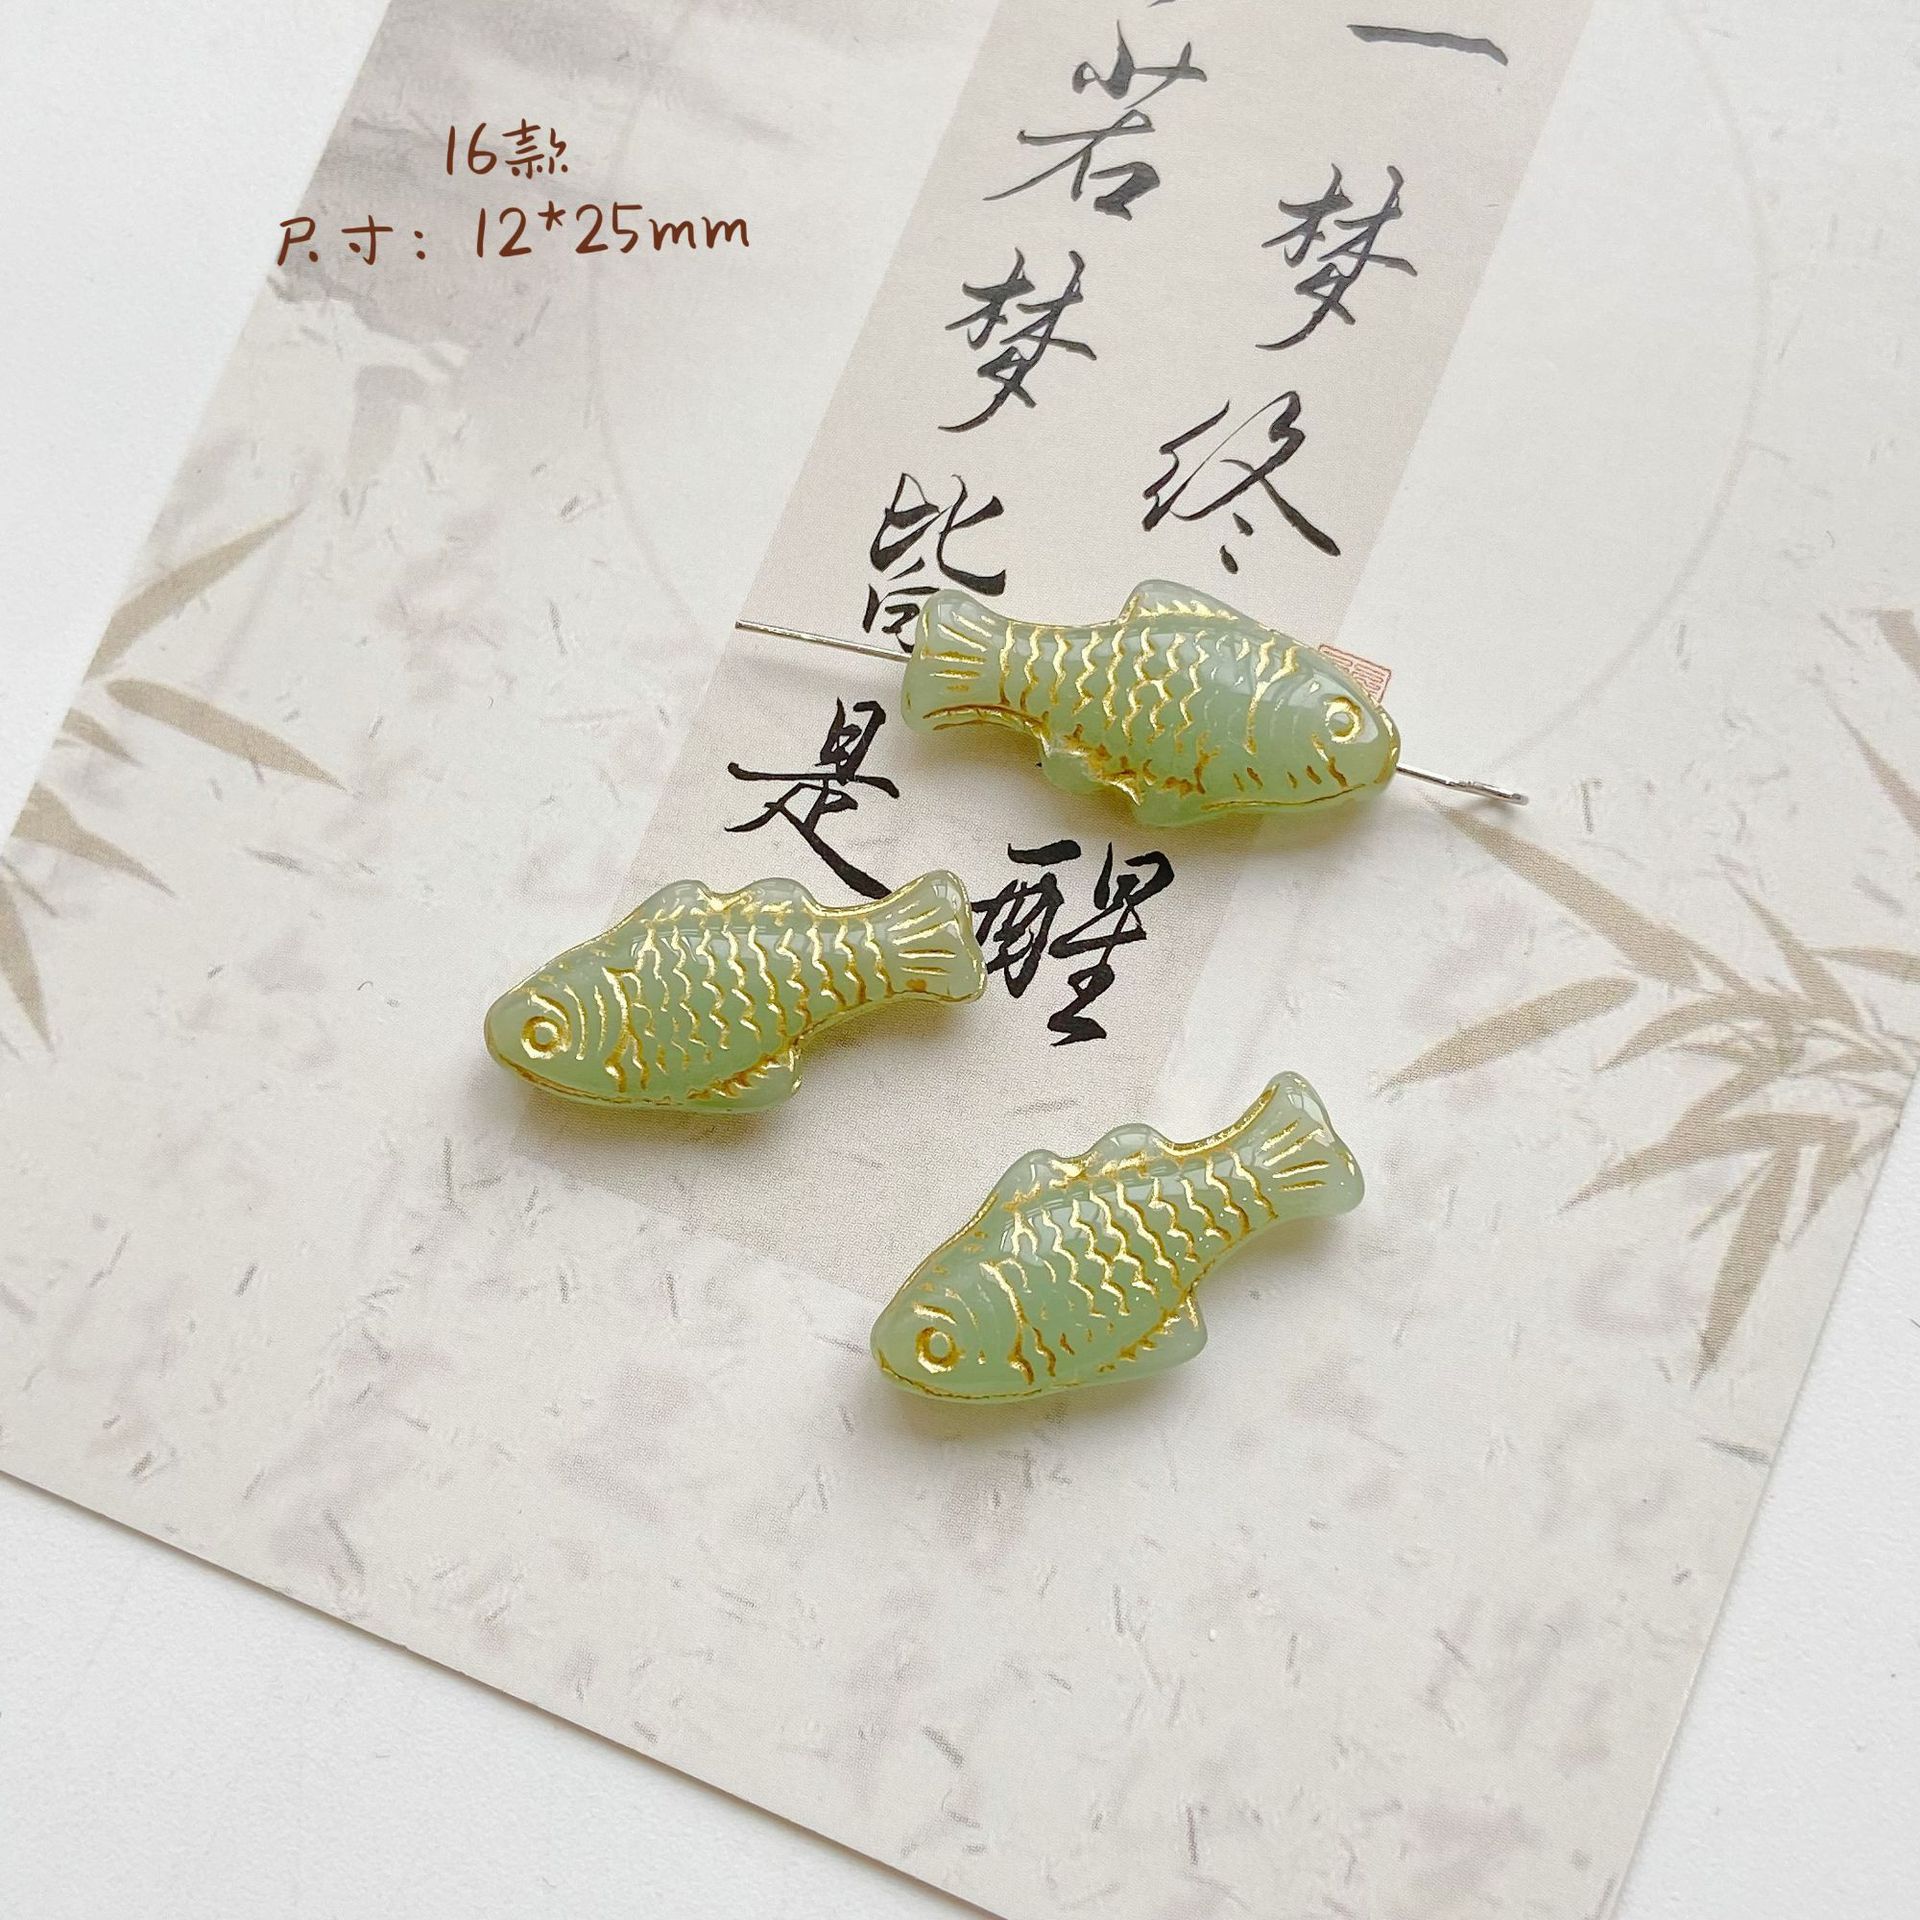 16款
尺寸：12*25mm
一梦终醒
若梦皆是